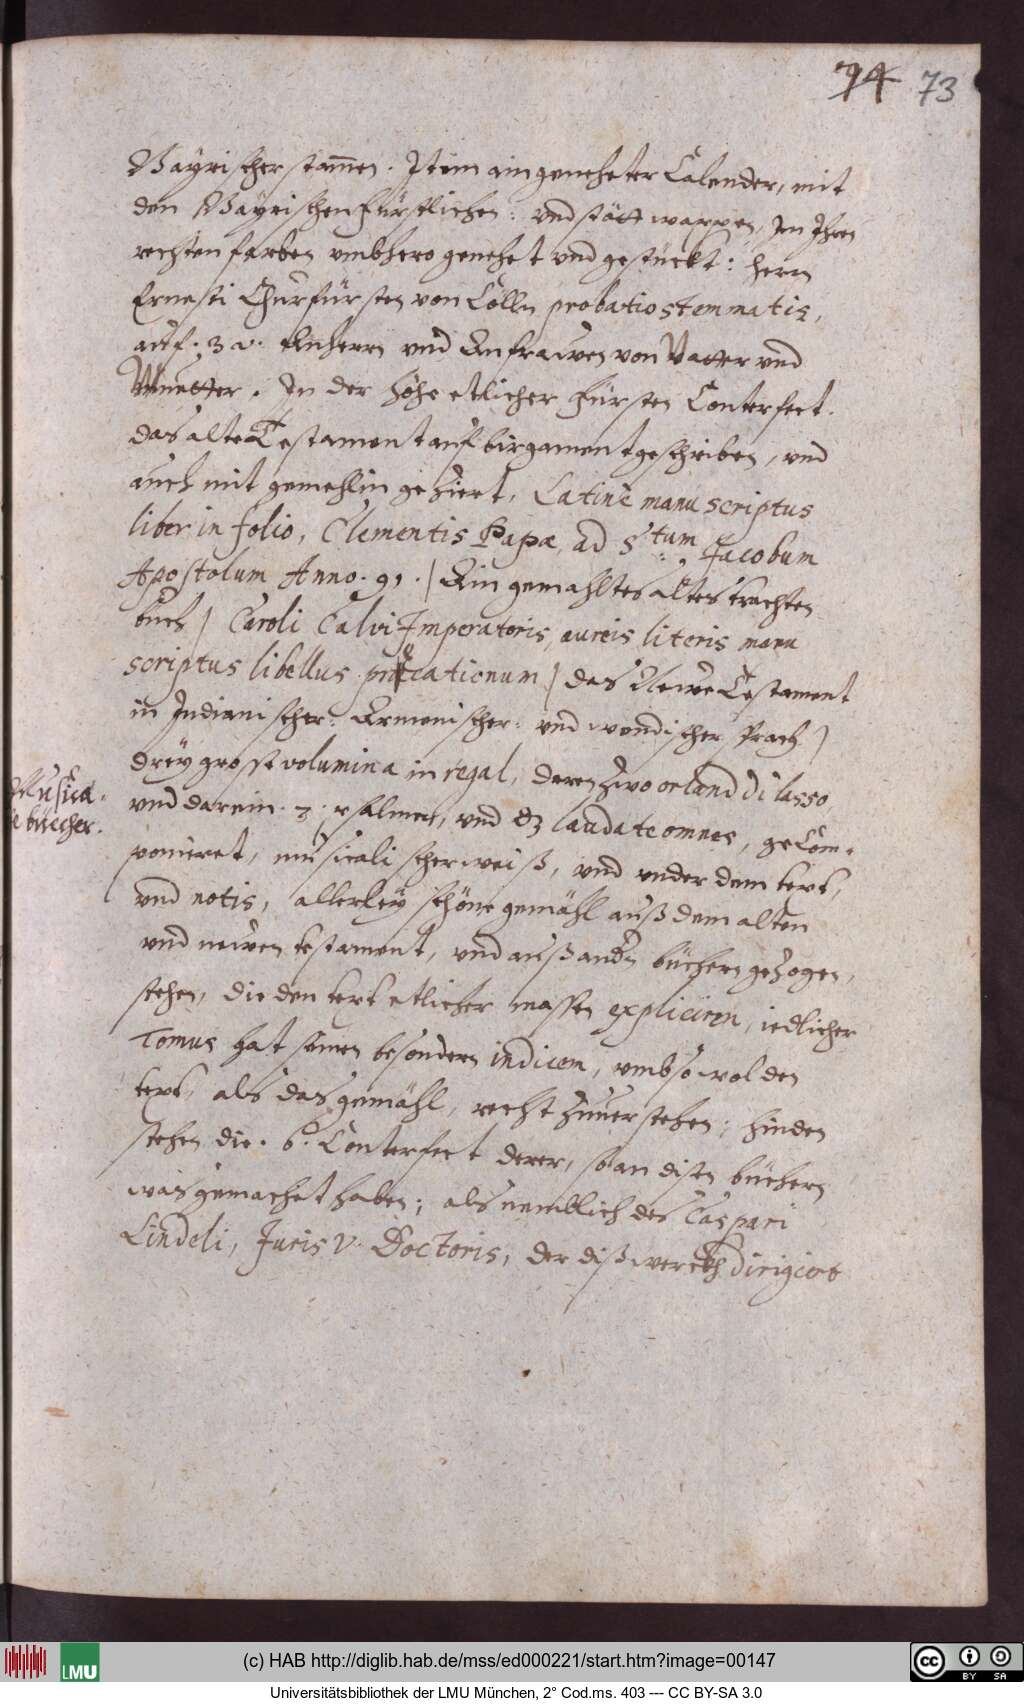 74 73
Bayrischer stam̄en. Item ain geneheter Calender, mit
den Bayrischen Fürstlichen: und stätt wappen, Jn Jhren
rechten farben umbhero genehet und gestückt: herrn
Ernesti Churfürsten von Cölln probatio stemmatis,
auf. 32. Anherrn und Anfrawen von Vatter und
Muetter. Jn der höhe etlicher Fürsten Conterfect.
das alte Testament auf birgament geschriben, und
auch mit gemehlin geziert, Latinè manu scriptus
liber in folio, Clementis Papæ, ad S:tum Jacobum
Apostolum Anno. 91. / Ain gemahltes altes trachten
buch / Caroli Calvi Jmperatoris, aureis literis manu
scriptus libellus precationum / das Newe Testament
in Jndianischer: Armenischer: und wendischer sprach /
Musica-
le buecher.
drey grosse volumina in regal, deren zwo orland di lasso
und darein. 7. psalmen, und dz laudate omnes, geCom-
poniret, musicalischer weiß, und under dem text,
und notis, allerley schöne gemähl auß dem alten
und newen testament, und auß andn büchern gezogen,
stehen, die den text etlicher massen expliciren, iedlicher
Tomus hat seinen besondern indicem, umb sowol den
text, als das gemähl, recht zuuerstehen; hinden
stehen die. 6. Conterfect derer, so an disen büchern
was gemachet haben; als nemblich des Caspari
Lindeli, Juris V. Doctoris, der diß werckh dirigiert
(c) HAB http://diglib.hab.de/mss/ed000221/start.htm?image=00147
LMU
CC BY SA
Universitätsbibliothek der LMU München, 2° Cod.ms. 403 --- CC BY-SA 3.0